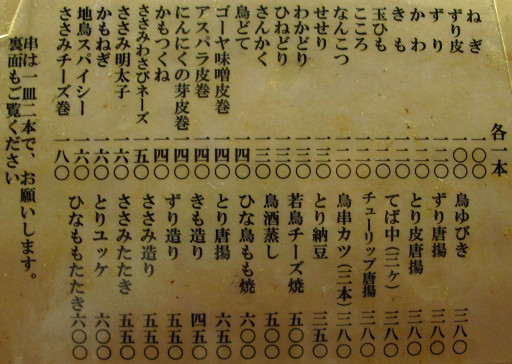 各一本
ねぎ 一〇〇
ずり皮 一〇〇
ずり 一二〇
かわ 一二〇
きも 一二〇
玉ひも 一二〇
こころ 一二〇
なんこつ 一二〇
せせり 一三〇
わかどり 一三〇
ひねどり 一三〇
さんかく 一三〇
鳥どて 一四〇
ゴーヤ味噌皮巻 一四〇
アスパラ皮巻 一四〇
にんにくの芽皮巻 一四〇
かもつくね 一四〇
ささみわさびネーズ 一五〇
ささみ明太子 一六〇
かもねぎ 一六〇
地鳥スパイシー 一六〇
ささみチーズ巻 一八〇
鳥ゆびき 三八〇
ずり唐揚 三八〇
とり皮唐揚 三八〇
てば中(三ケ) 三八〇
チューリップ唐揚 三八〇
鳥串カツ(二本) 三八〇
とり納豆 三五〇
若鳥チーズ焼 五〇〇
鳥酒蒸し 五〇〇
ひな鳥もも焼 六〇〇
とり唐揚 六五〇
きも造り 四五〇
ずり造り 五五〇
ささみ造り 五五〇
ささみたたき 五五〇
とりユッケ 六〇〇
ひなももたたき 六〇〇
串は一皿二本で、お願いします。
裏面もご覧ください